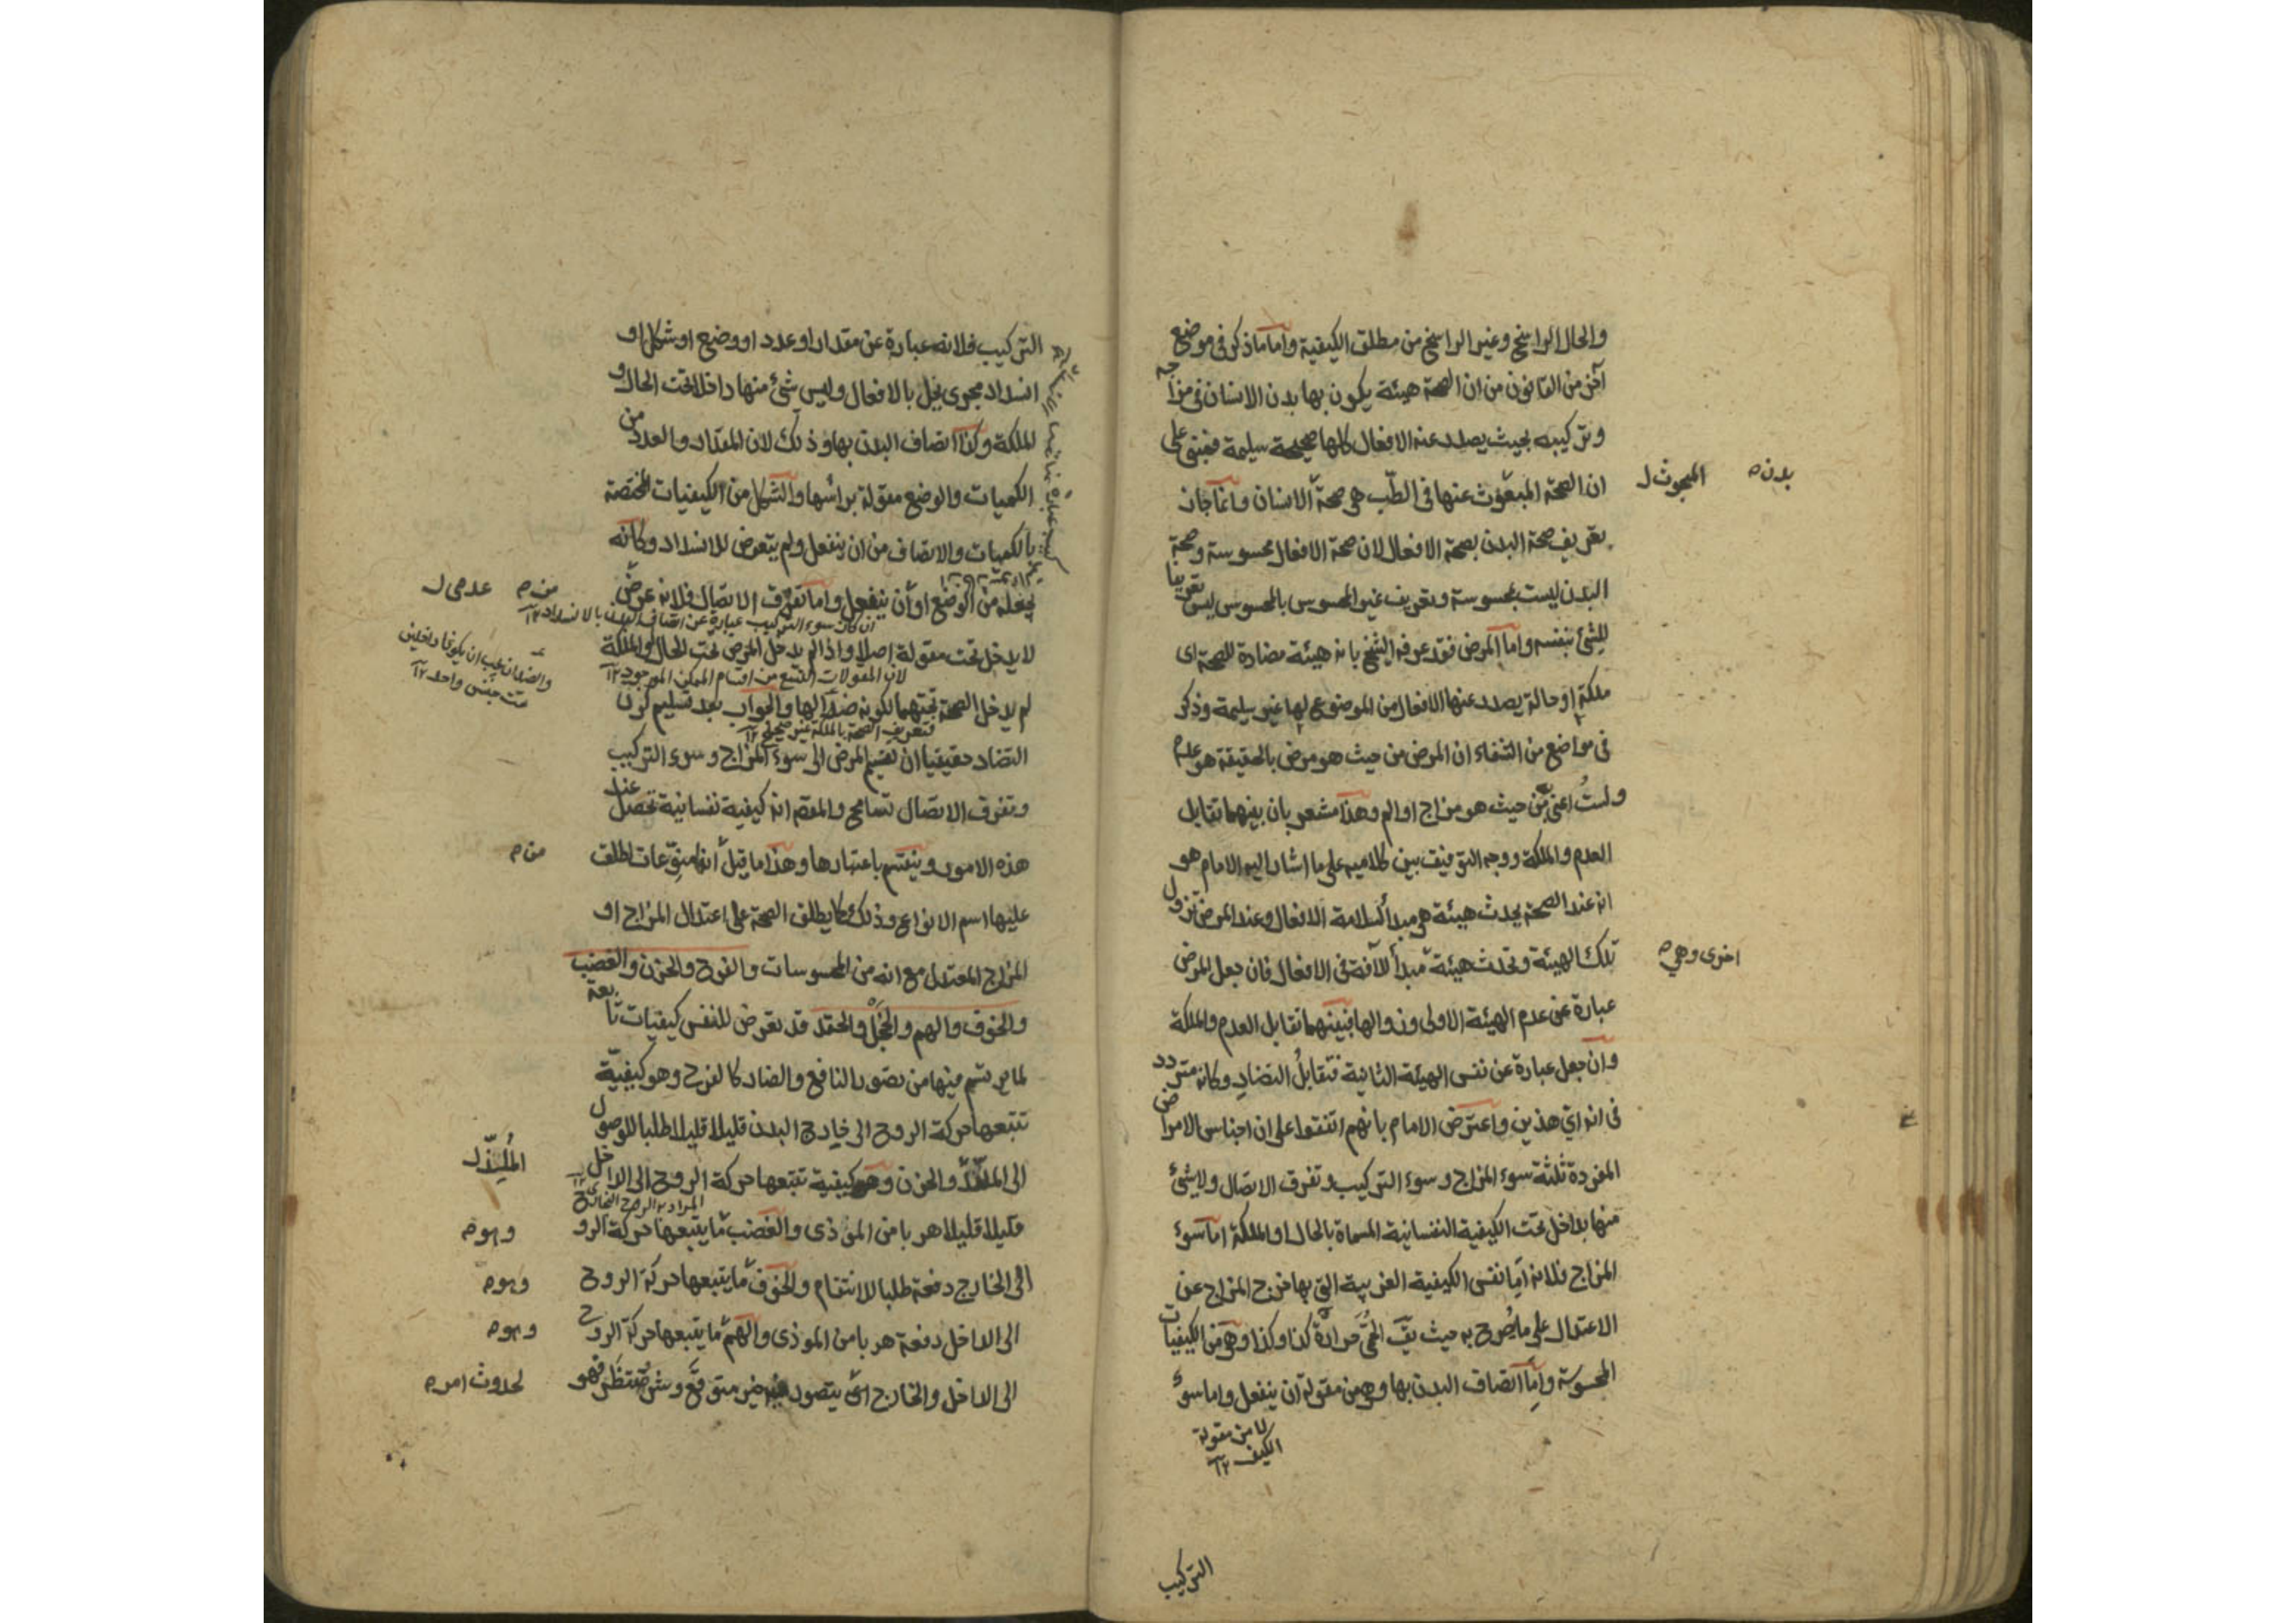 والحال الراسخ وغير الراسخ من مطلق الكيفية واما ما ذكر فى موضع
آخر من القانون من ان الصحة هيئة يكون بها بدن الانسان فى مزاجه
وتركيبه بحيث يصدر عنه الافعال كلها صحيحة سليمة فمبنى على
ان الصحة المبعوث عنها فى الطب هى صحة الانسان وانما جاز
المبحوث ل
بدن ه
تعريف صحة البدن بصحة الافعال لان صحة الافعال محسوسة وصحة
البدن ليست بمحسوسة وتعريف غير المحسوس بالمحسوس ليس تعريفا
للشئ بنفسه واما المرض فقد عرفه الشيخ بانه هيئة مضادة للصحة اى
ملكة او حالة يصدر عنها الافعال من الموضوع لها غير سليمة وذكر
فى مواضع من الشفاء ان المرض من حيث هو مرض بالحقيقة هو عدم
ولست اعنى من حيث هو مزاج او الم وهذا مشعر بان بينهما تقابل
العدم والملكة ووجه التوفيق بين كلاميه على ما اشار اليه الامام هو
انه عند الصحة يحدث هيئة هى مبدأ لسلامة الافعال وعند المرض تزول
تلك الهيئة وتحدث هيئة مبدأ للآفة فى الافعال فان جعل المرض
اخرى وهي ه
عبارة عن عدم الهيئة الاولى وزوالها فبينهما تقابل العدم والملكة
وان جعل عبارة عن نفس الهيئة الثانية فتقابل التضاد وكانه متردد
فى انه اي هذين واعترض الامام بانهم اتفقوا على ان اجناس الامراض
المفردة ثلثة سوء المزاج وسوء التركيب وتفرق الاتصال ولا شئ
منها بداخل تحت الكيفية النفسانية المسماة بالحال او الملكة اما سوء
المزاج فلانه اما نفس الكيفية الغريبة التى بها خرج المزاج عن
الاعتدال على ما يصرح به حيث يق الحمى حرارة كذا وكذا وهى من الكيفيات
المحسوسة واما اتصاف البدن بها وهو من مقولة ان ينفعل واما سوء
لا من مقولة
الكيف ١٢
التركيب
التركيب فلانه عبارة عن مقدار او عدد او وضع او شكل او
انسداد مجرى يخل بالافعال وليس شئ منها داخلا تحت الحال و
الملكة وكذا اتصاف البدن بها وذلك لان المقدار والعدد من
الكميات والوضع مقولة براسها والشكل من الكيفيات المختصة
بالكميات والاتصاف من ان ينفعل ولم يتعرض للانسداد وكانه
يجعله من الوضع او أن ينفعل واما تفرق الاتصال فلانه عرض
من ه
عدمى ل
ان كان سوء التركيب عبارة عن اتصاف البدن بالانسداد ١٢
لا يدخل تحت مقولة اصلا واذا لم يدخل المرض تحت الحال والملكة
لان المقولات التسع من اقسام الممكن الموجود ١٢
والضدان يجب ان يكونا داخلين
تحت جنس واحد ١٢
لم يدخل الصحة تحتهما لكونه ضدا لها والجواب بعد تسليم كون
فتعريف الصحة بالملكة غير صحيح ١٢
التضاد حقيقيا ان تقسيم المرض الى سوء المزاج وسوء التركيب
وتفرق الاتصال تسامح والمقصد انه كيفية نفسانية تحصل عند
هذه الامور وينقسم باعتبارها وهذا ما قيل انها منوعات اطلق
من ه
عليها اسم الانواع وذلك كما يطلق الصحة على اعتدال المزاج او
المزاج المعتدل مع انه من المحسوسات والفرح والحزن والغضب
والخوف والهم والخجل والحقد قد تعرض للنفس كيفيات تابعة
لما يرتسم فيها من تصور النافع والضار كالفرح وهو كيفية
تتبعها حركة الروح الى خارج البدن قليلا قليلا طلبا للوصول
الى الملذ والحزن وهو كيفية تتبعها حركة الروح الى الداخل
المُلِيذّ ل
قليلا قليلا هربا من الموذى والغضب ما يتبعها حركة الرو
وهو ه
الى الخارج دفعة طلبا للانتقام والخوف ما يتبعها حركة الروح
وهو ه
الى الداخل دفعة هربا من الموذى والهم ما يتبعها حركة الروح
وهو ه
الى الداخل والخارج اى يتصور خير متوقع وشر منتظر فهو
لحدوث امر ه